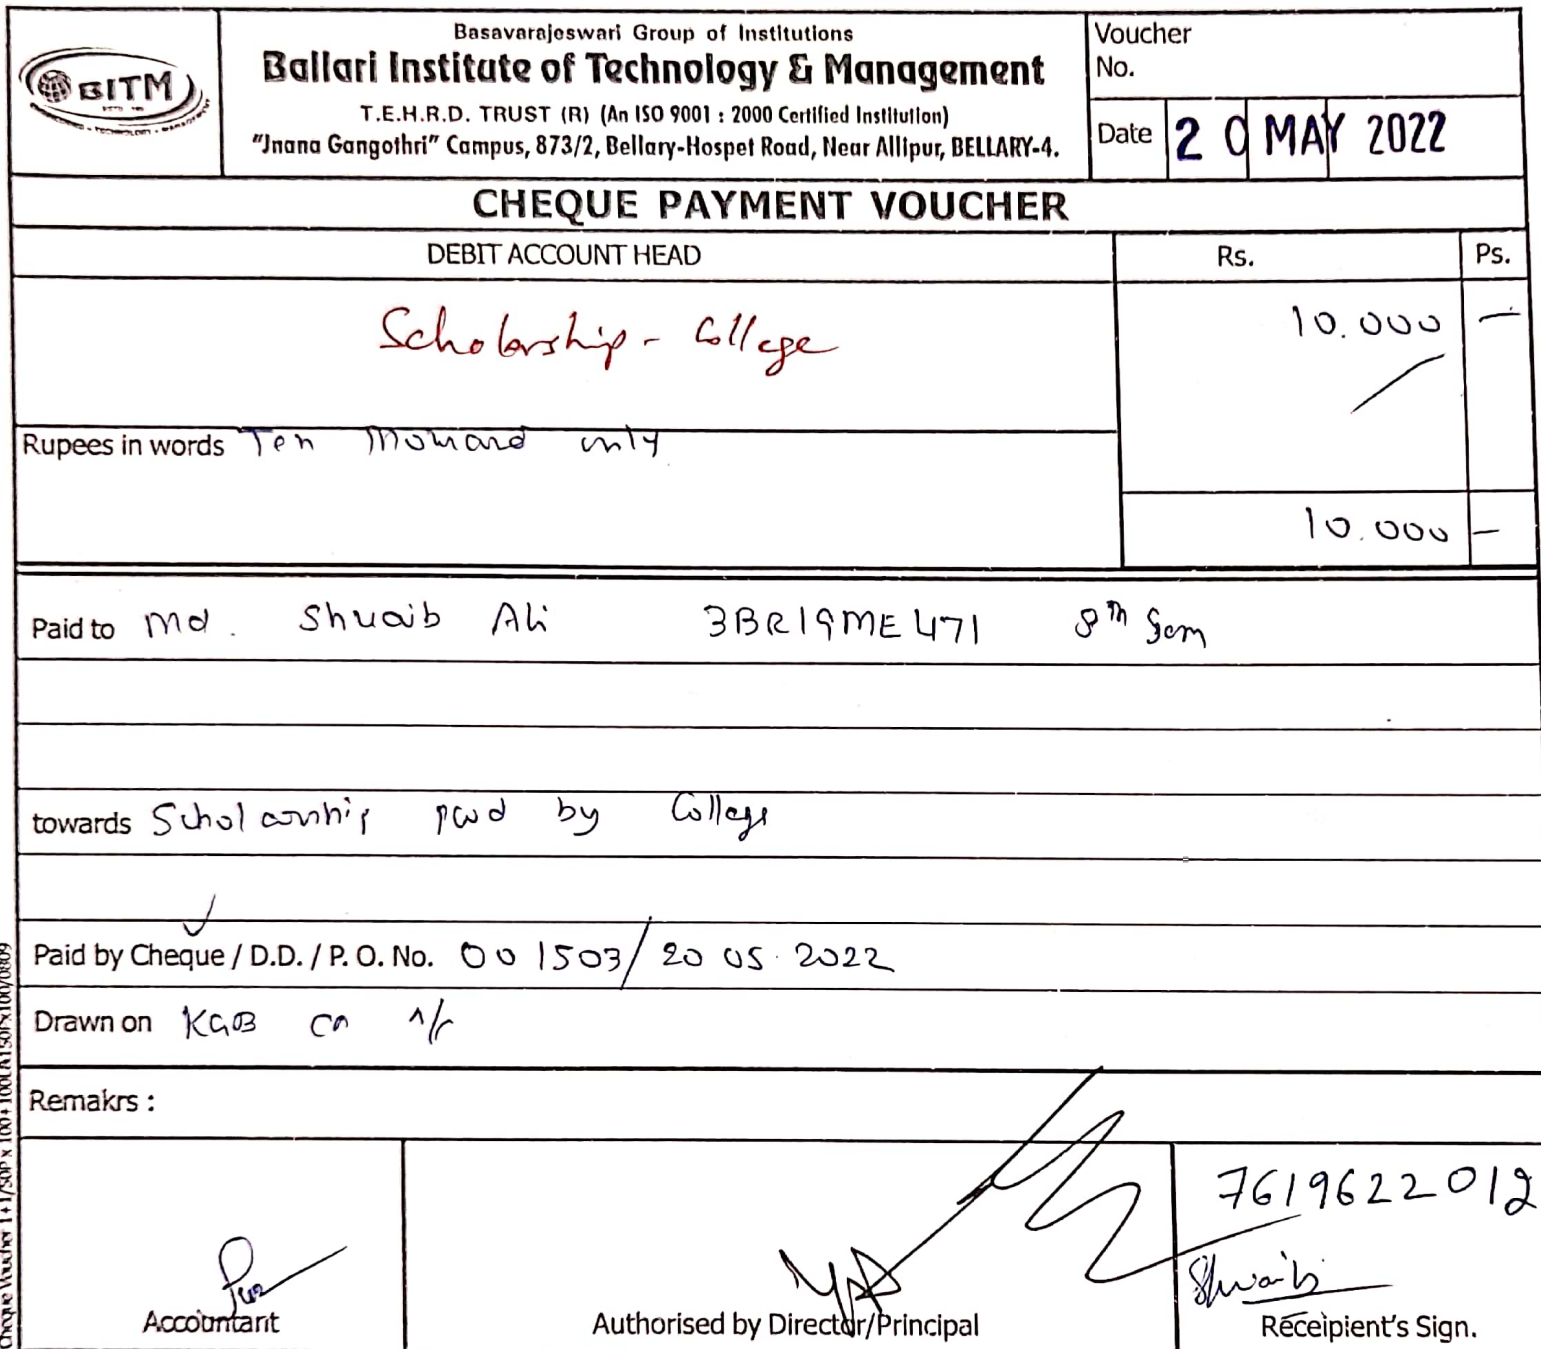 BITM
Basavarajeswari Group of Institutions
Ballari Institute of Technology & Management
T.E.H.R.D. TRUST (R) (An ISO 9001 : 2000 Certified Institution)
"Jnana Gangothri" Campus, 873/2, Bellary-Hospet Road, Near Allipur, BELLARY-4.
Voucher
No.
Date 20 MAY 2022
CHEQUE PAYMENT VOUCHER
DEBIT ACCOUNT HEAD Rs. Ps.
Scholarship - College 10.000 —
Rupees in words Ten Thousand only
10.000 —
Paid to Md. Shuaib Ali 3BR19ME471 8th Sem
towards Scholarship paid by College
Paid by Cheque / D.D. / P. O. No. 001503/ 20 05. 2022
Drawn on KGB CA A/c
Remakrs :
7619622012
Shuaib
Accountant Authorised by Director/Principal Receipient's Sign.